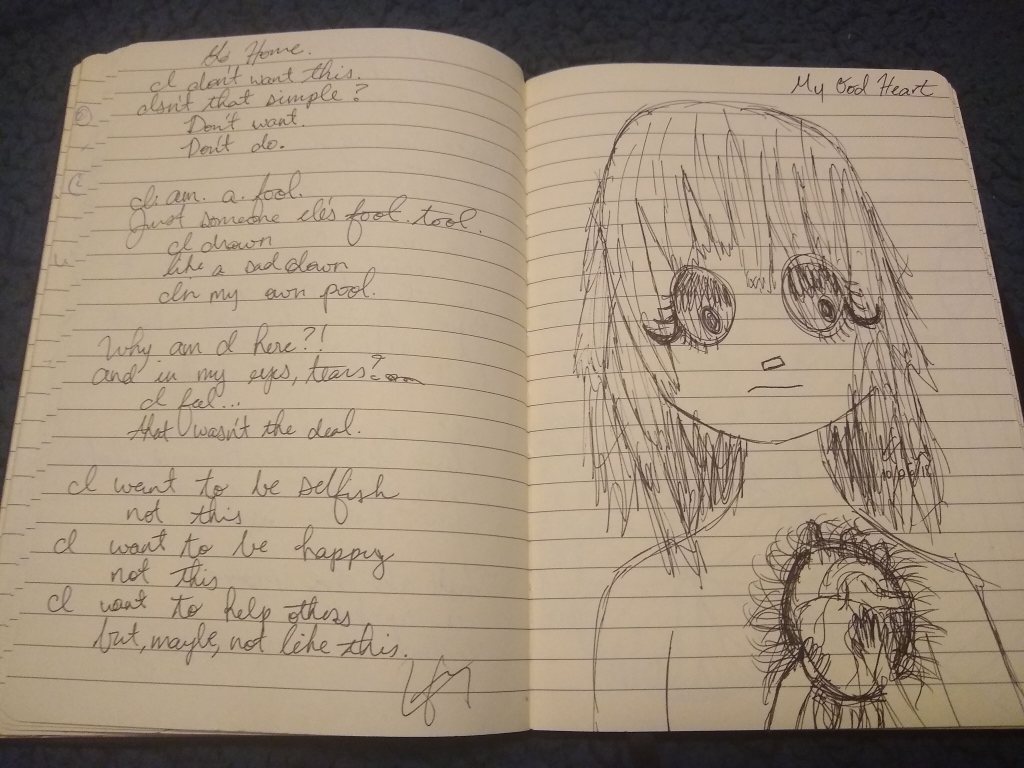 Home.
I don't want this.
Isn't that simple?
Don't want.
Don't do.
I. am. a. fool.
Just someone else's fool. tool.
I drown
like a sad clown
In my own pool.
Why am I here?!
and in my eyes, tears?
I feel...
that wasn't the deal.
I want to be selfish
not this
I want to be happy
not this
I want to help others
but, maybe, not like this.
My Good Heart